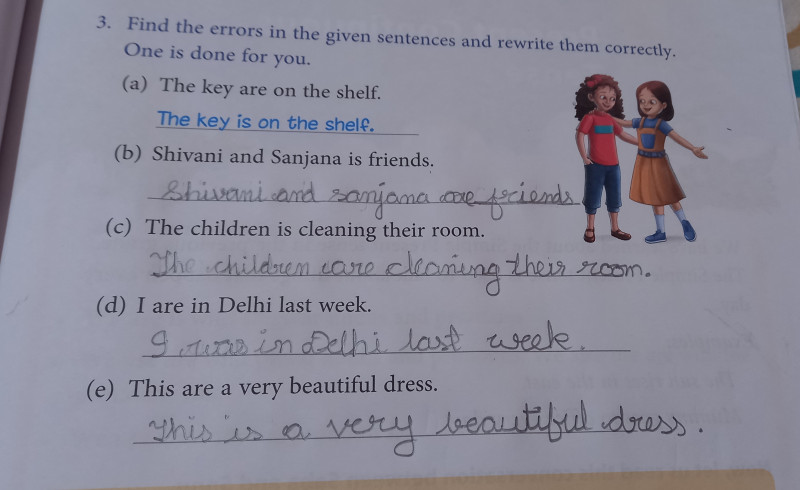 3. Find the errors in the given sentences and rewrite them correctly.
One is done for you.
(a) The key are on the shelf.
The key is on the shelf.
(b) Shivani and Sanjana is friends.
Shivani and sanjana are friends
(c) The children is cleaning their room.
The children are cleaning their room.
(d) I are in Delhi last week.
I was in Delhi last week.
(e) This are a very beautiful dress.
This is a very beautiful dress.